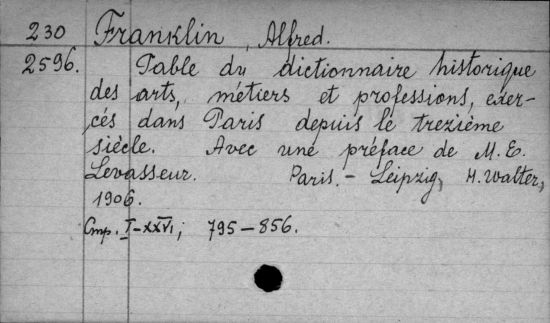 230 Franklin, Alfred.
2596. Table du dictionnaire historique
des arts, métiers et professions, exer-
cés dans Paris depuis le trezième
siècle. Avec une préface de M. E.
Levasseur. Paris. - Leipzig, H. Walter,
1906.
Стр. I-XXVI; 795-856.